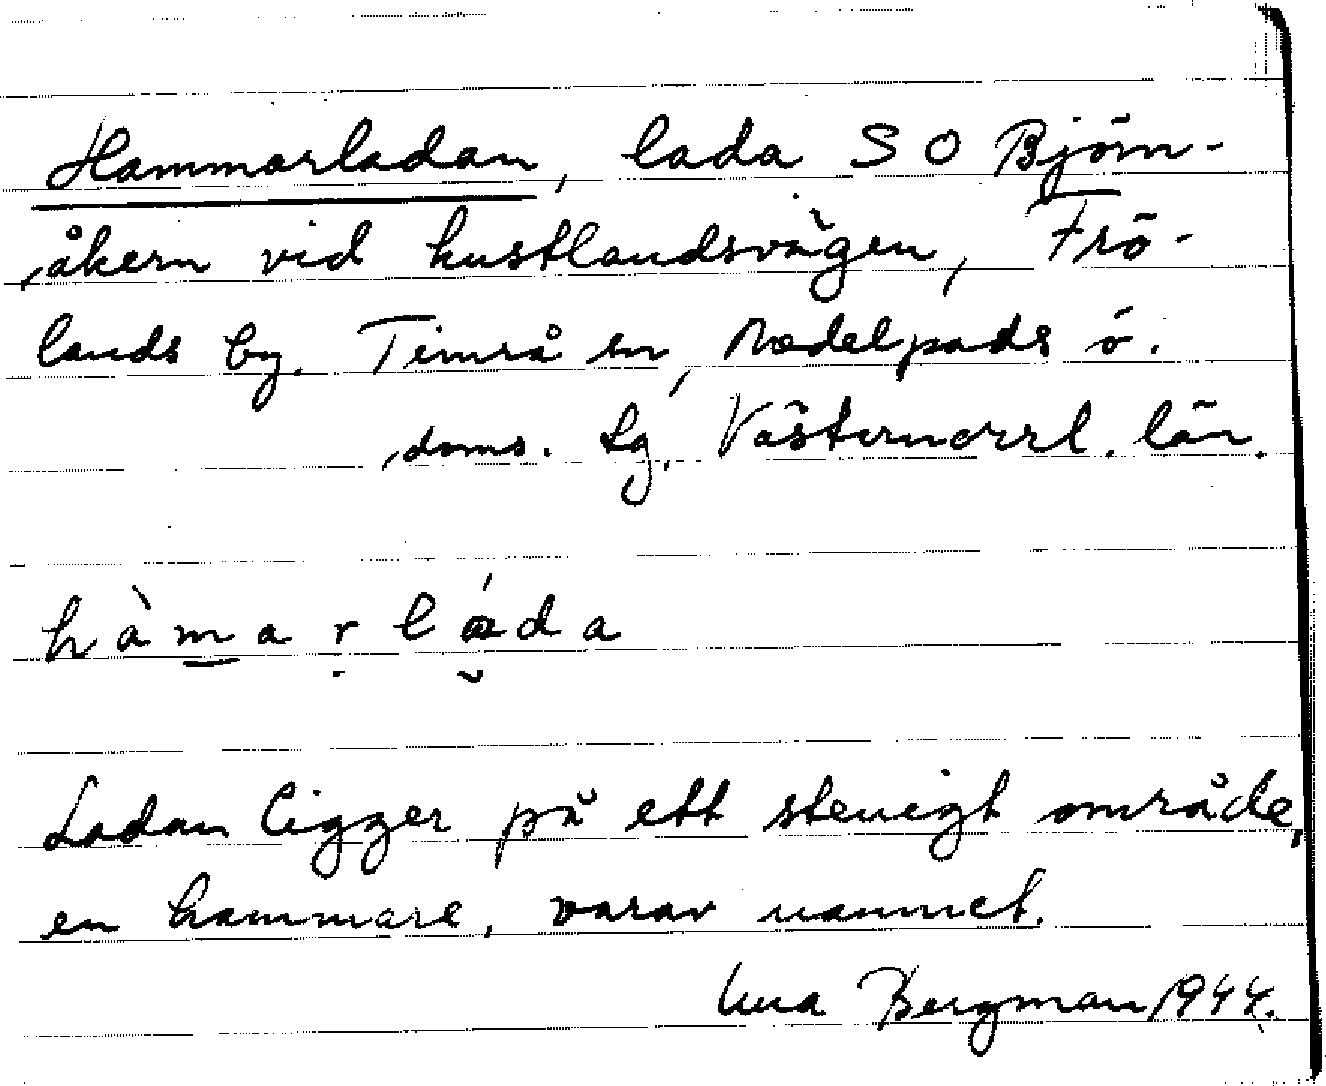 Hammarladan, lada SO Björn-
åkern vid kustlandsvägen, Frö-
lands by. Timrå sn, Medelpads ö.
doms. Lg, Västernorrl. län.
hàmarláda
Ladan ligger på ett stenigt område,
en hammare, varav namnet.
Bergman 1944.